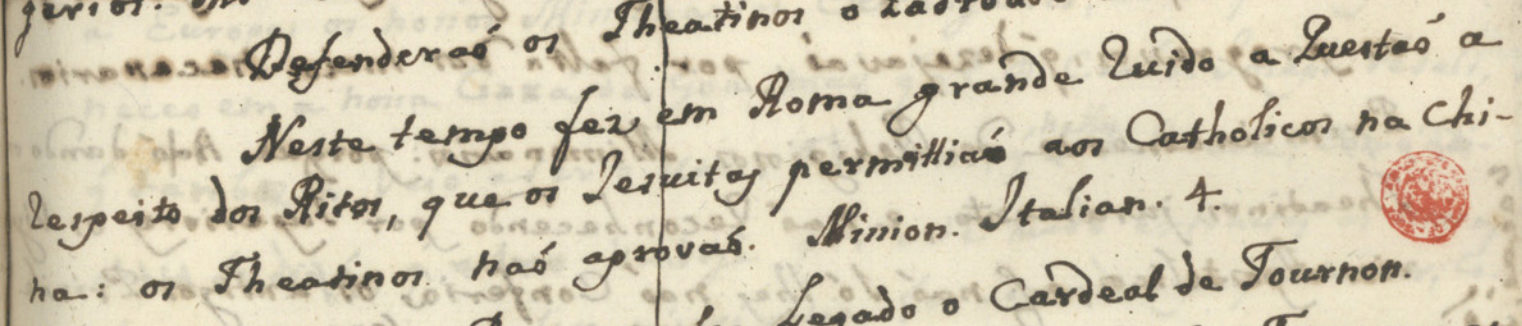 Defenderaó os Theatinos o
Neste tempo fez em Roma grande ruido a Questaó a
respeito dos Ritos, que os Jesuitas permittiaó aos Catholicos na Chi-
na: os Theatinos naó aprovaó. Minion. Italian. 4.
Legado o Cardeal de Tournon.